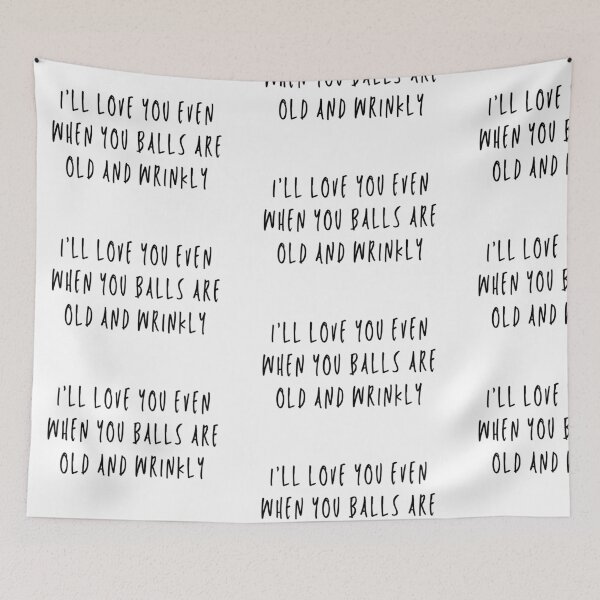 I'LL LOVE YOU EVEN
WHEN YOU BALLS ARE
OLD AND WRINKLY
I'LL LOVE YOU EVEN
WHEN YOU BALLS ARE
OLD AND WRINKLY
I'LL LOVE YOU EVEN
WHEN YOU BALLS ARE
OLD AND WRINKLY
WHEN YOU BALLS ARE
OLD AND WRINKLY
I'LL LOVE YOU EVEN
WHEN YOU BALLS ARE
OLD AND WRINKLY
I'LL LOVE YOU EVEN
WHEN YOU BALLS ARE
OLD AND WRINKLY
I'LL LOVE YOU EVEN
WHEN YOU BALLS ARE
I'LL LOVE
WHEN YOU
OLD AND
I'LL LOVE
WHEN YOU
OLD AND
I'LL LOVE
WHEN YOU
OLD AND